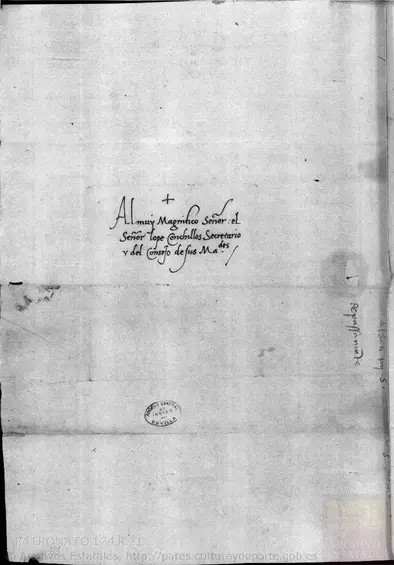 +
Al muy Magnifico Señor. el
Señor lope Conchillos Secretario
y del Consejo de sus Ma.des
ARCHIVO GENERAL
DE
INDIAS
SEVILLA
PATRONATO,174,R.21
© Archivos Estatales, http://pares.culturaydeporte.gob.es